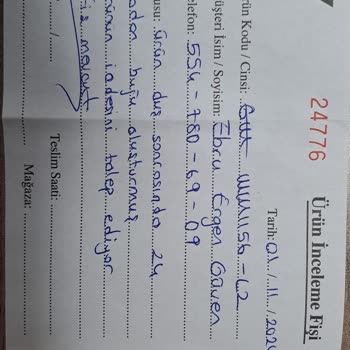 24776
Ürün İnceleme Fişi
Tarih: 01 / 11 / 202
rün Kodu / Cinsi:
üşteri İsim / Soyisim: Ebru Ergen Güven
elefon: 554-780-69-09
usu: ürün duş sonrasında 24
buğu oluşturmuş
iadesini talep ediyor
mevcut
Teslim Saati:
Mağaza: